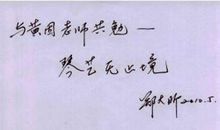 与黄国老师共勉—
琴艺无止境
郑大昕 2010.5.